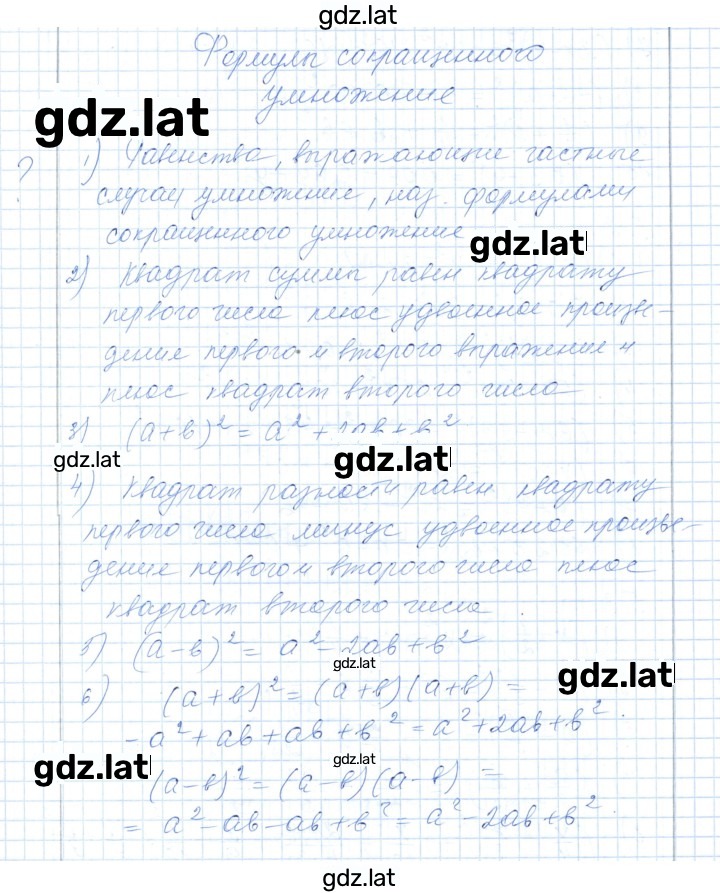 gdz.lat
Формулы сокращенного
gdz.lat
умножение
? 1) Равенства, выражающие частные
случаи умножение, наз. формулами
сокращенного умножение
gdz.lat
2) Квадрат суммы равен квадрату
первого числа плюс удвоенное произве-
дение первого и второго выражение и
плюс квадрат второго числа
3) (a+b)² = a² + 2ab + b²
gdz.lat gdz.lat
4) Квадрат разности равен квадрату
первого числа минус удвоенное произве-
дение первого и второго числа плюс
квадрат второго числа.
5) (a-b)² = a² - 2ab + b²
gdz.lat
gdz.lat
6) (a+b)² = (a+b)(a+b) =
= a² + ab + ab + b² = a² + 2ab + b².
gdz.lat gdz.lat
(a-b)² = (a-b)(a-b) =
= a² - ab - ab + b² = a² - 2ab + b².
gdz.lat